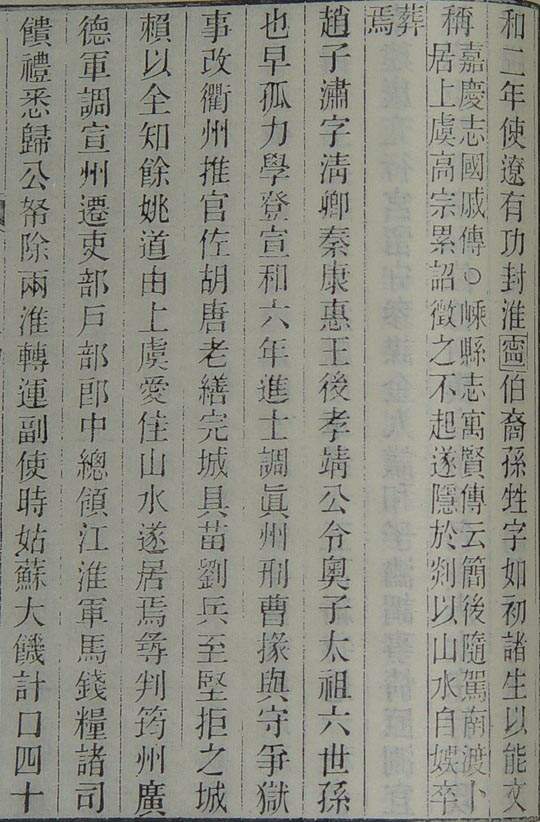 和二年使遼有功封淮甯伯裔孫甡字如初諸生以能文
稱嘉慶志國戚傳○嵊縣志寓賢傳云簡後隨駕南渡卜
居上虞高宗累詔徵之不起遂隱於剡以山水自娛卒
葬
焉
趙子潚字淸卿秦康惠王後孝靖公令奧子太祖六世孫
也早孤力學登宣和六年進士調眞州刑曹掾與守爭獄
事改衢州推官佐胡唐老繕完城具苗劉兵至堅拒之城
賴以全知餘姚道由上虞愛佳山水遂居焉尋判筠州廣
德軍調宣州遷吏部戶部郎中總領江淮軍馬錢糧諸司
饋禮悉歸公帑除兩淮轉運副使時姑蘇大饑計口四十